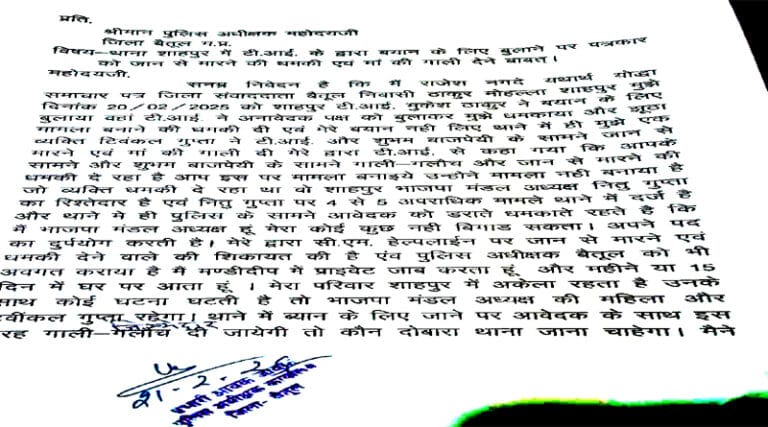 प्रति.
श्रीमान पुलिस अधीक्षक महोदयजी
जिला बैतूल म.प्र.
विषय—थाना शाहपुर में टी.आई. के द्वारा बयान के लिए बुलाने पर पत्रकार
को जान से मारने की धमकी एवं मां की गाली देने बाबत।
महोदयजी.
सनम्र निवेदन है कि मैं राजेश नगदे यथार्थ योद्धा
समाचार पत्र जिला संवाददाता बैतूल निवासी ठाकुर मोहल्ला शाहपुर मुझे
दिनांक 20/02/2025 को शाहपुर टी.आई. मुकेश ठाकुर ने बयान के लिए
बुलाया वहां टी.आई. ने अनावेदक पक्ष को बुलाकर मुझे धमकाया और झूठा
मामला बनाने की धमकी दी एवं मेरे बयान नही लिए थाने में ही मुझे एक
व्यक्ति टिवंकल गुप्ता ने टी.आई. और शुभम बाजपेयी के सामने जान से
मारने एवं मां की गाली दी मेरे द्वारा टी.आई. से कहा गया कि आपके
सामने और शुभम बाजपेयी के सामने गाली—गलौच और जान से मारने की
धमकी दे रहा है आप इस पर मामला बनाइये उन्होने मामला नही बनाया है
जो व्यक्ति धमकी दे रहा था वो शाहपुर भाजपा मंडल अध्यक्ष नितु गुप्ता
का रिश्तेदार है एवं नितु गुप्ता पर 4 से 5 अपराधिक मामले थाने में दर्ज है
और थाने मे ही पुलिस के सामने आवेदक को डराते धमकाते रहते है कि
मैं भाजपा मंडल अध्यक्ष हूं मेरा कोई कुछ नही बिगाड सकता। अपने पद
का दुर्पयोग करती है। मेरे द्वारा सी.एम. हेल्पलाईन पर जान से मारने एवं
धमकी देने वाले की शिकायत की है एंव पुलिस अधीक्षक बैतूल को भी
अवगत कराया है मैं मण्डीदीप में प्राइवेट जाब करता हूं और महीने या 15
दिन में घर पर आता हूं । मेरा परिवार शाहपुर में अकेला रहता है उनके
साथ कोई घटना घटती है तो भाजपा मंडल अध्यक्ष की महिला और
टवींकल गुप्ता रहेगा। थाने में ब्यान के लिए जाने पर आवेदक के साथ इस
रह गाली—गलौच दी जायेगी तो कौन दोबारा थाना जाना चाहेगा। मैने
21-2-2
प्रभारी आवक
पुलिस अधीक्षक कार्यालय
जिला- बैतूल